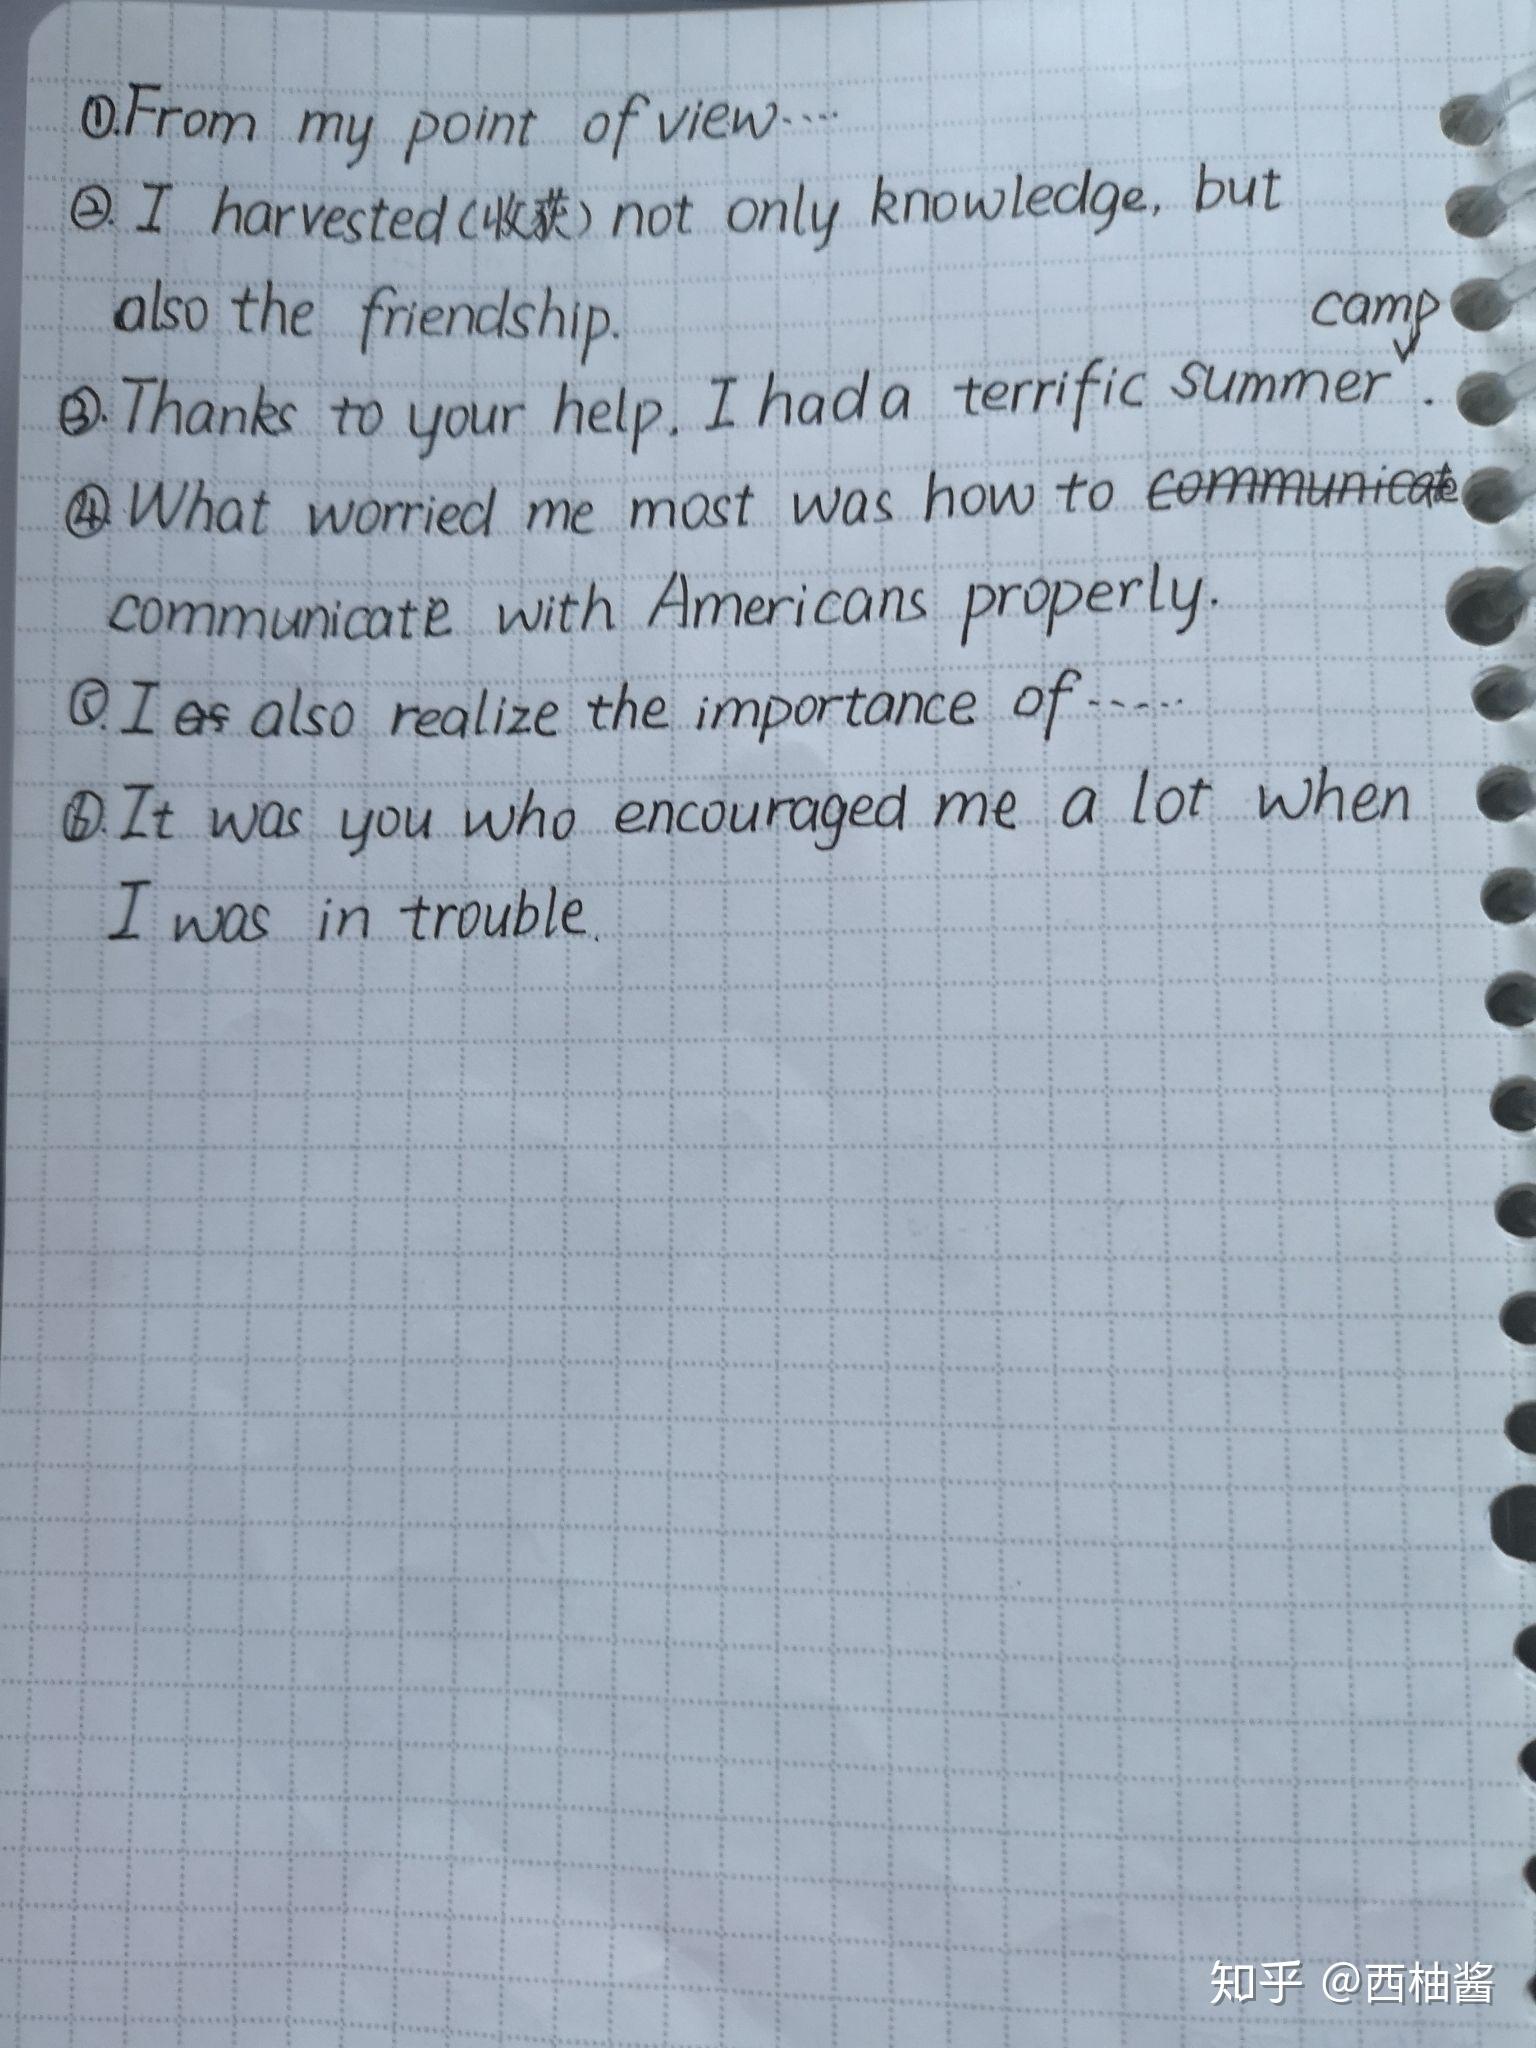 ①.From my point of view····
②.I harvested(收获)not only knowledge, but
also the friendship.
camp
③.Thanks to your help, I had a terrific summer .
④.What worried me most was how to communicate
communicate with Americans properly.
⑤.I as also realize the importance of-----
⑥.It was you who encouraged me a lot when
I was in trouble.
知乎 @西柚酱